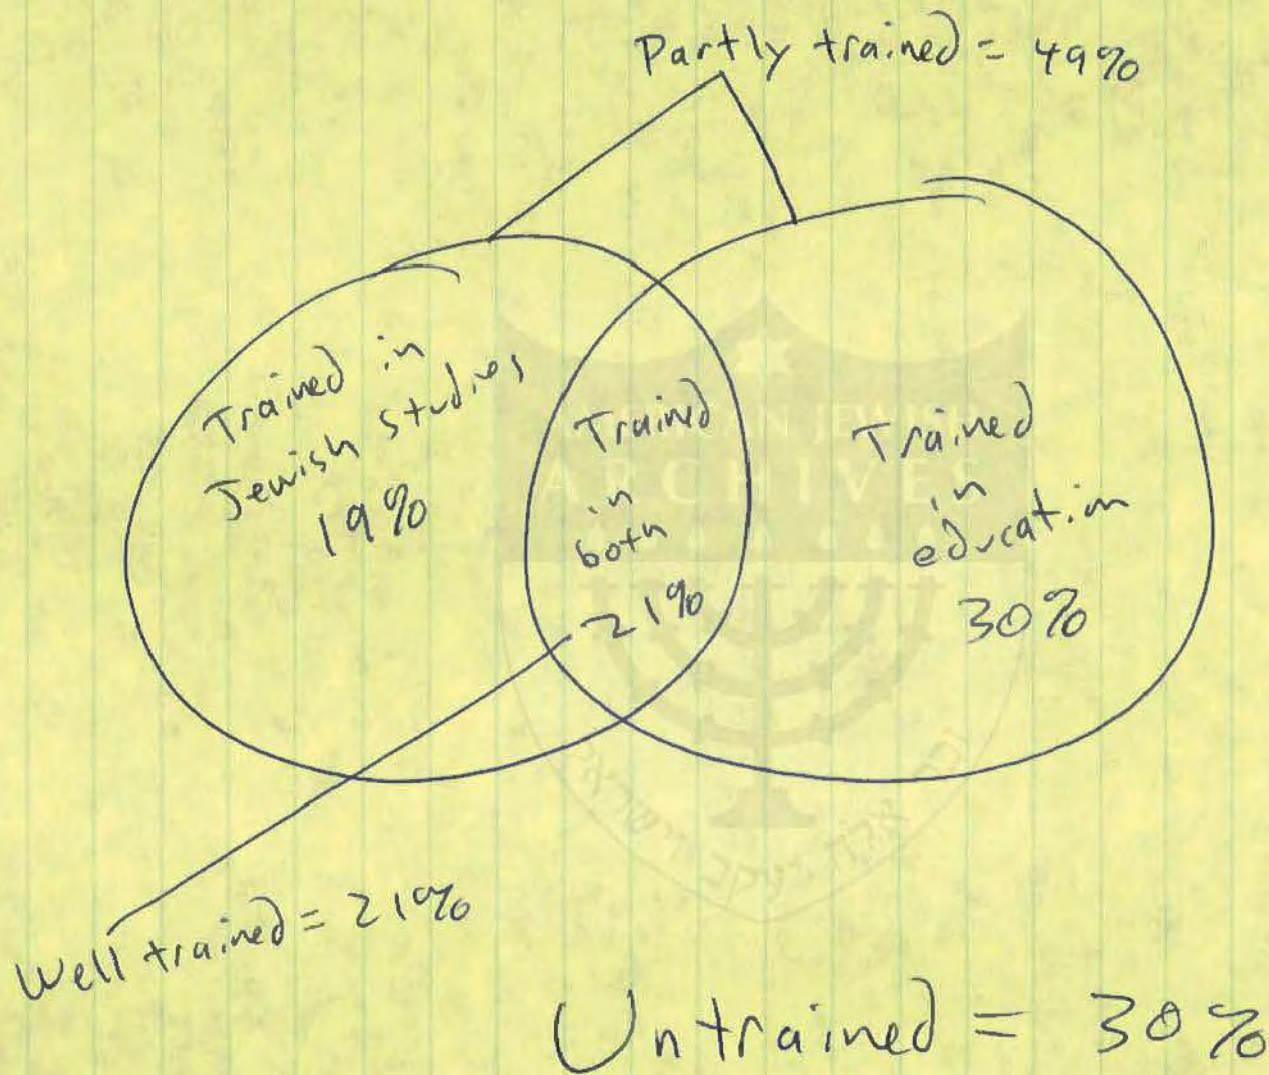 Partly trained = 49%
Trained in
Jewish studies
19%
Trained
in
both
21%
Trained
in
education
30%
Well trained = 21%
Untrained = 30%
AMERICAN JEWISH
ARCHIVES